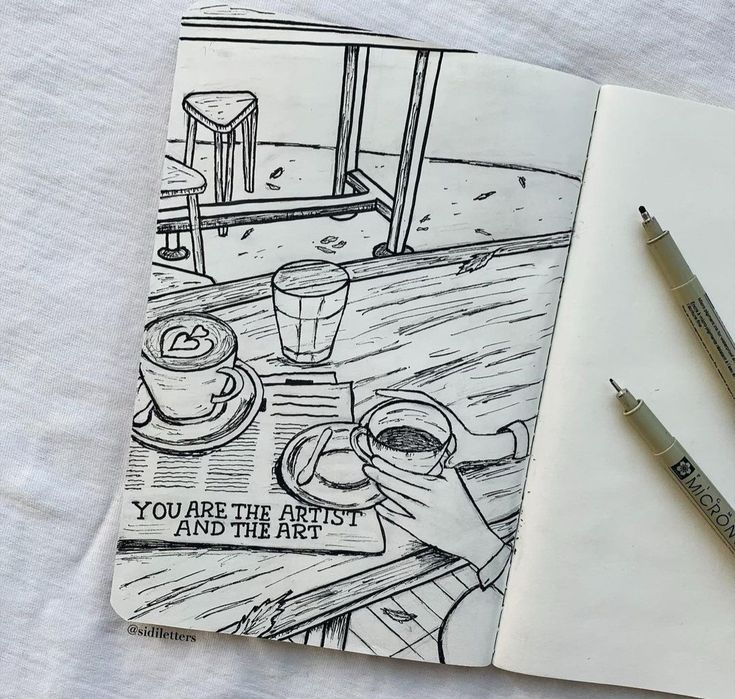 YOU ARE THE ARTIST
AND THE ART
@sidiletters
MICRON